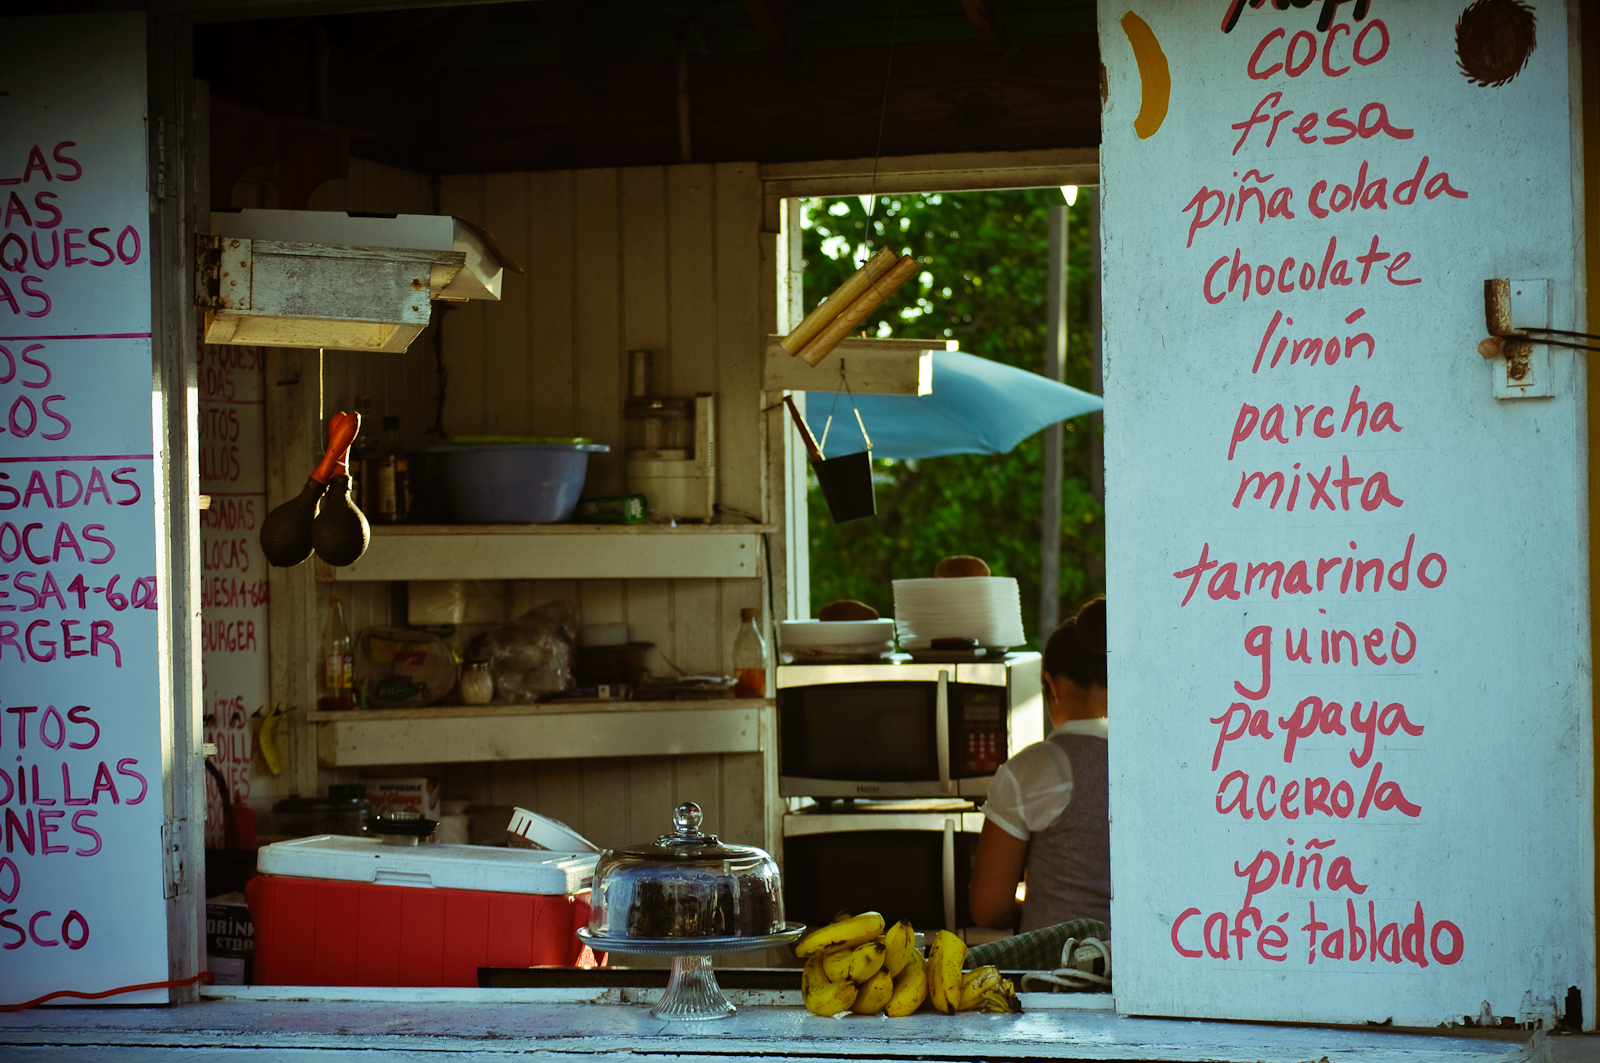 LAS
GAS
QUESO
AS
OS
LOS
SADAS
OCAS
ESA 4-6 OZ
RGER
ITOS
DILLAS
ONES
O
SCO
+QUESO
ADAS
ITOS
LLOS
ASADAS
LOCAS
UESA 4-6 OZ
BURGER
ITOS
ADILLA
DISPOSABLE
Vinyl Gloves
DRINK
STRA
Haier
coco
fresa
piña colada
chocolate
limón
parcha
mixta
tamarindo
guineo
papaya
acerola
piña
café tablado